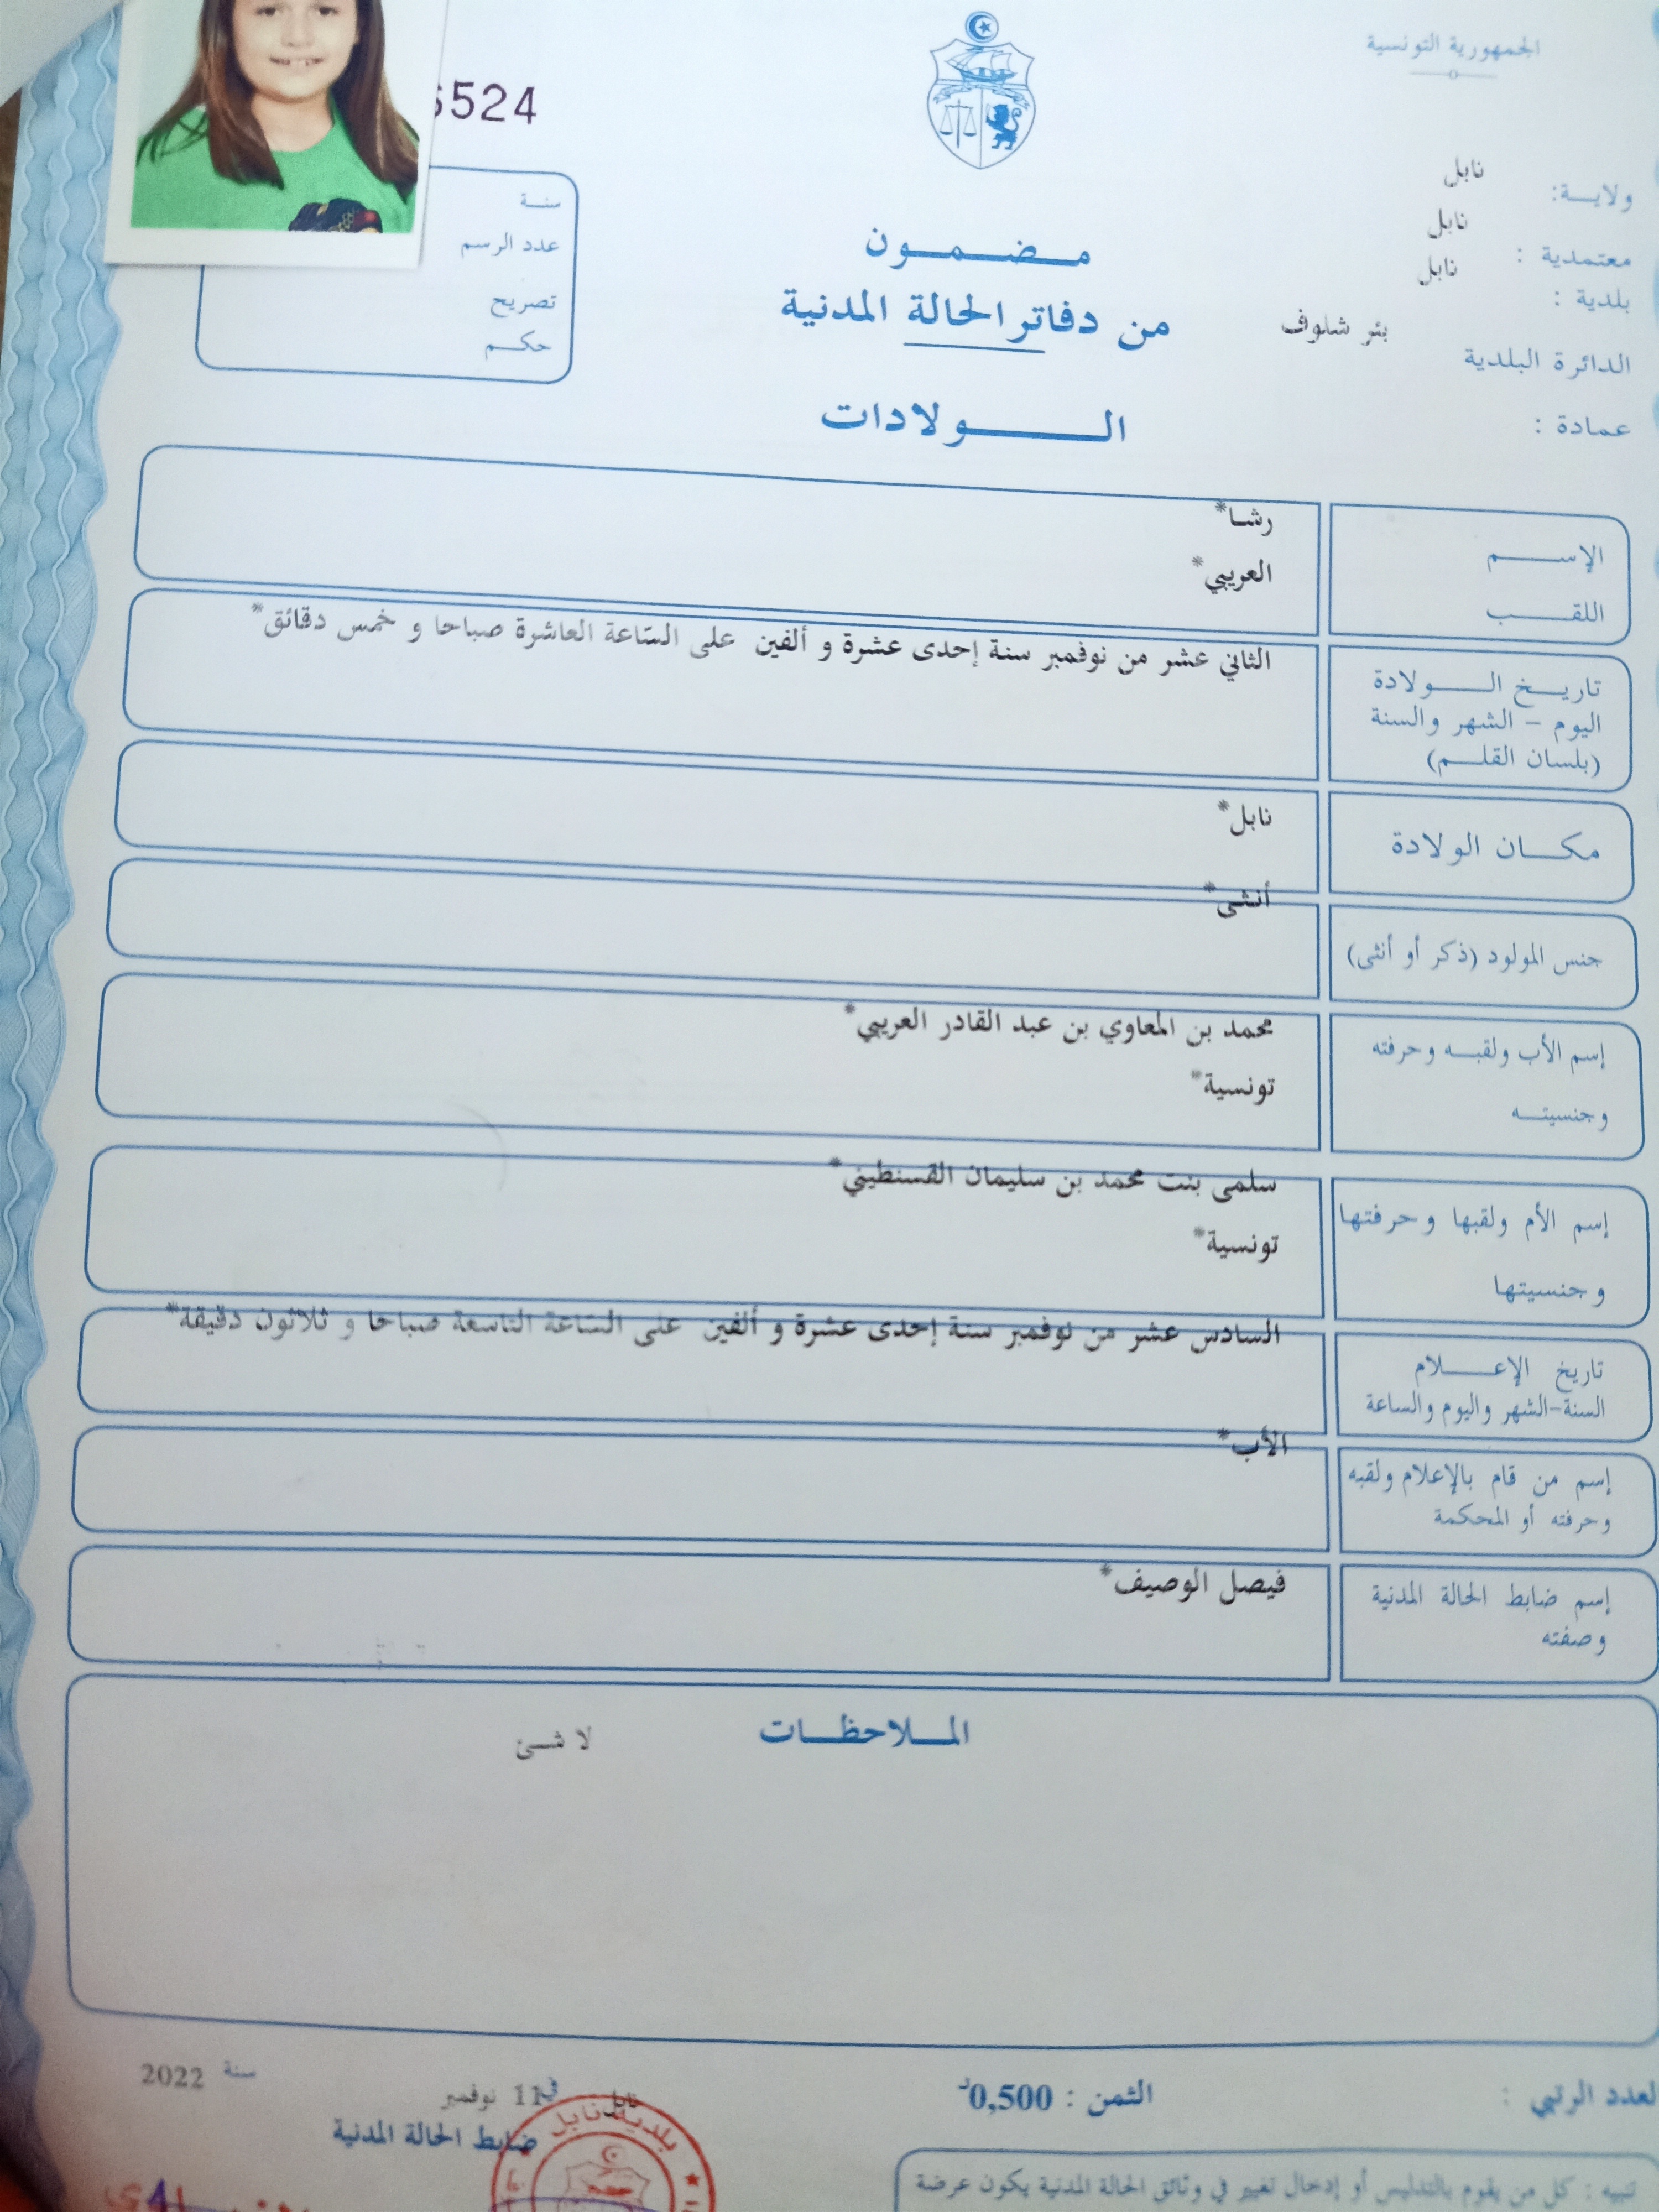 الجمهورية التونسية
6524
ولايـــة: نابل
معتمدية : نابل
بلدية : نابل
الدائرة البلدية بئر شلوف
عمادة :
مـــضـــمـــون
من دفاتر الحالة المدنية
الـــــولادات
سنــة
عدد الرسم
تصريح
حكــم
الإســـــم رشا*
اللقـــب العريبي*
تاريـــخ الـــــولادة الثاني عشر من نوفمبر سنة إحدى عشرة و ألفين على الساعة العاشرة صباحا و خمس دقائق*
اليوم – الشهر والسنة
(بلسان القلـــم)
مكـــان الولادة نابل*
جنس المولود (ذكر أو أنثى) أنثى*
إسم الأب ولقبـــه وحرفته محمد بن المعاوي بن عبد القادر العريبي*
وجنسيتـــه تونسية*
إسم الأم ولقبها وحرفتها سلمى بنت محمد بن سليمان القسنطيني*
وجنسيتها تونسية*
تاريخ الإعــــلام السادس عشر من نوفمبر سنة إحدى عشرة و ألفين على الساعة التاسعة صباحا و ثلاثون دقيقة*
السنة-الشهر واليوم والساعة
إسم من قام بالإعلام ولقبه الأب*
وحرفته أو المحكمة
إسم ضابط الحالة المدنية فيصل الوصيف*
وصفته
المـــلاحظـــات
لا شئ
لعدد الرتبي :
الثمن : 0,500د
نابل في 11 نوفمبر سنة 2022
ضابط الحالة المدنية
بلدية نابل
تنبيه : كل من يقوم بالتدليس أو إدخال تغيير في وثائق الحالة المدنية يكون عرضة